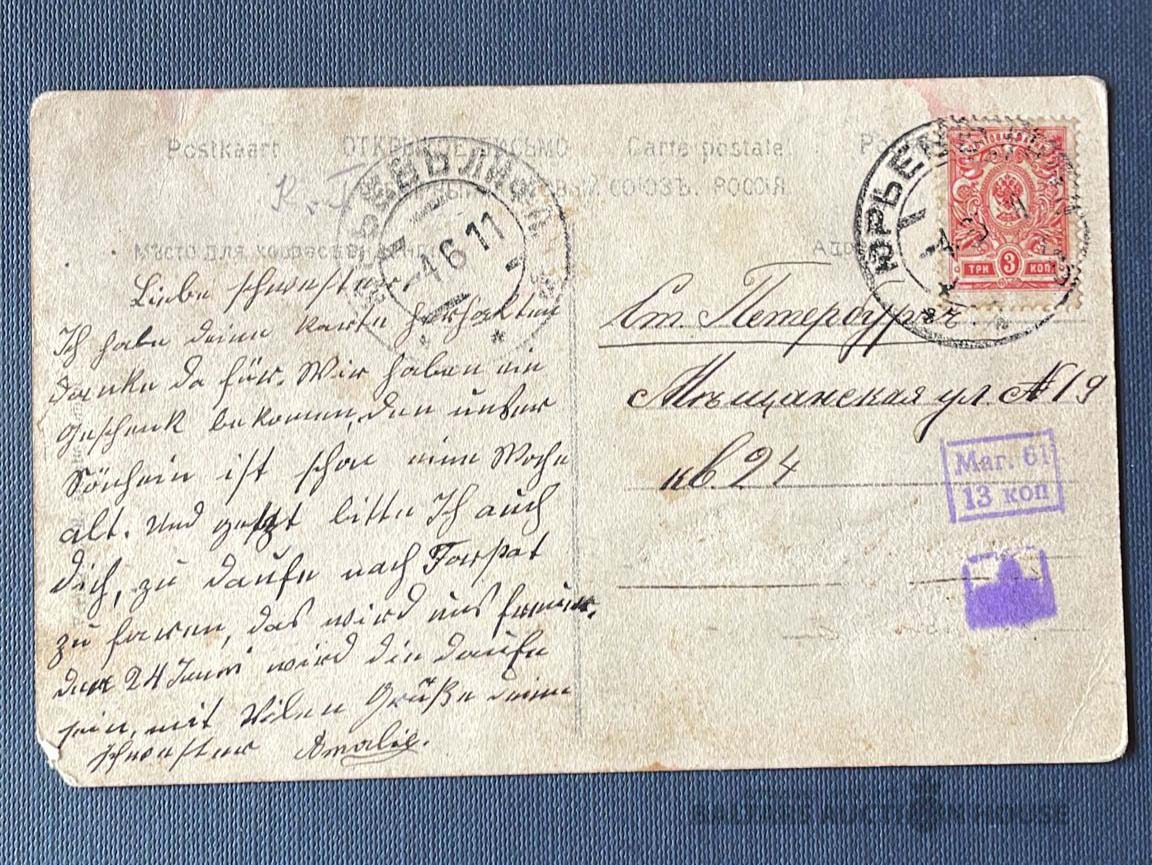 Postkaart ОТКРЫТОЕ ПИСЬМО Carte postale.
СОЮЗЪ. РОССІЯ
Мѣсто для
ЮРЬЕВЪ ЛИФЛ.
-4 6 11
ЮРЬЕВЪ
ТРИ 3 КОП.
Liebe schwester.
Ich habe deine Karte herhalten
danke da für. Wir haben ein
geschenk bekomen, den unser
Sönchein ist schon eine Woche
alt. Und getzt bitte Ich auch
dich, zu daufe nach Tarpat
zu faren, das wird uns freuen.
den 24 Juni wird die daufe
sein, mit Vilen Grüße deine
schwester Amalie.
Ст. Петербургъ
Мѣщанская ул. № 19
кв 24
Маг. 61
13 коп
BALTIC AUCTION HOUSE